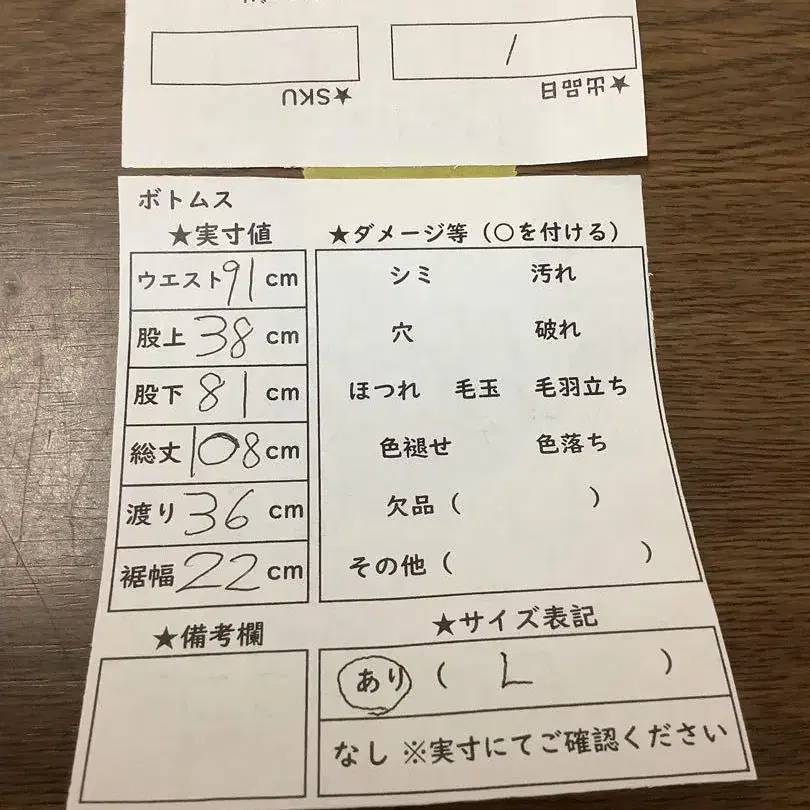 /
★出品日
★SKU
ボトムス
★実寸値
ウエスト91cm
股上38cm
股下81cm
総丈108cm
渡り36cm
裾幅22cm
★ダメージ等(○を付ける)
シミ 汚れ
穴 破れ
ほつれ 毛玉 毛羽立ち
色褪せ 色落ち
欠品( )
その他( )
★備考欄
★サイズ表記
あり( L )
なし ※実寸にてご確認ください